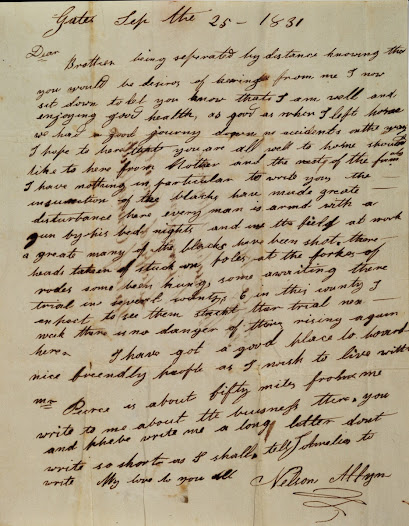 Gates Sep the 25 - 1831
Dear
Brethren being separated by distance knowing that
you would be desiros of hearing from me I now
sit down to let you know that I am well and
enjoying good health, as good as when I left home
we had a good journey down no accidents on the way
I hope to hear that you are all well to home should
like to here from Mother and the rest of the
I have nothing in particular to write you the
insurrection of the blacks have made great
disturbance here every man is armd with a
gun by his bed nights and in the field at work
a great many of the blacks have been shot there
heads taken of stuck on poles at the forkes of
rodes some been hung, some awaiting there
trial in several countys, 6 in this county I
expect to see them strecht ther trial nex
week there is no danger of their rising again
here. I have got a good place to board
nice friendly people as I wish to live with
mr Pierce is about fifty miles from me
write to me about the buisness there, you
and write me a long letter dont
write so short as I shall, tell Amelia to
write My love to you all Nelson Allyn